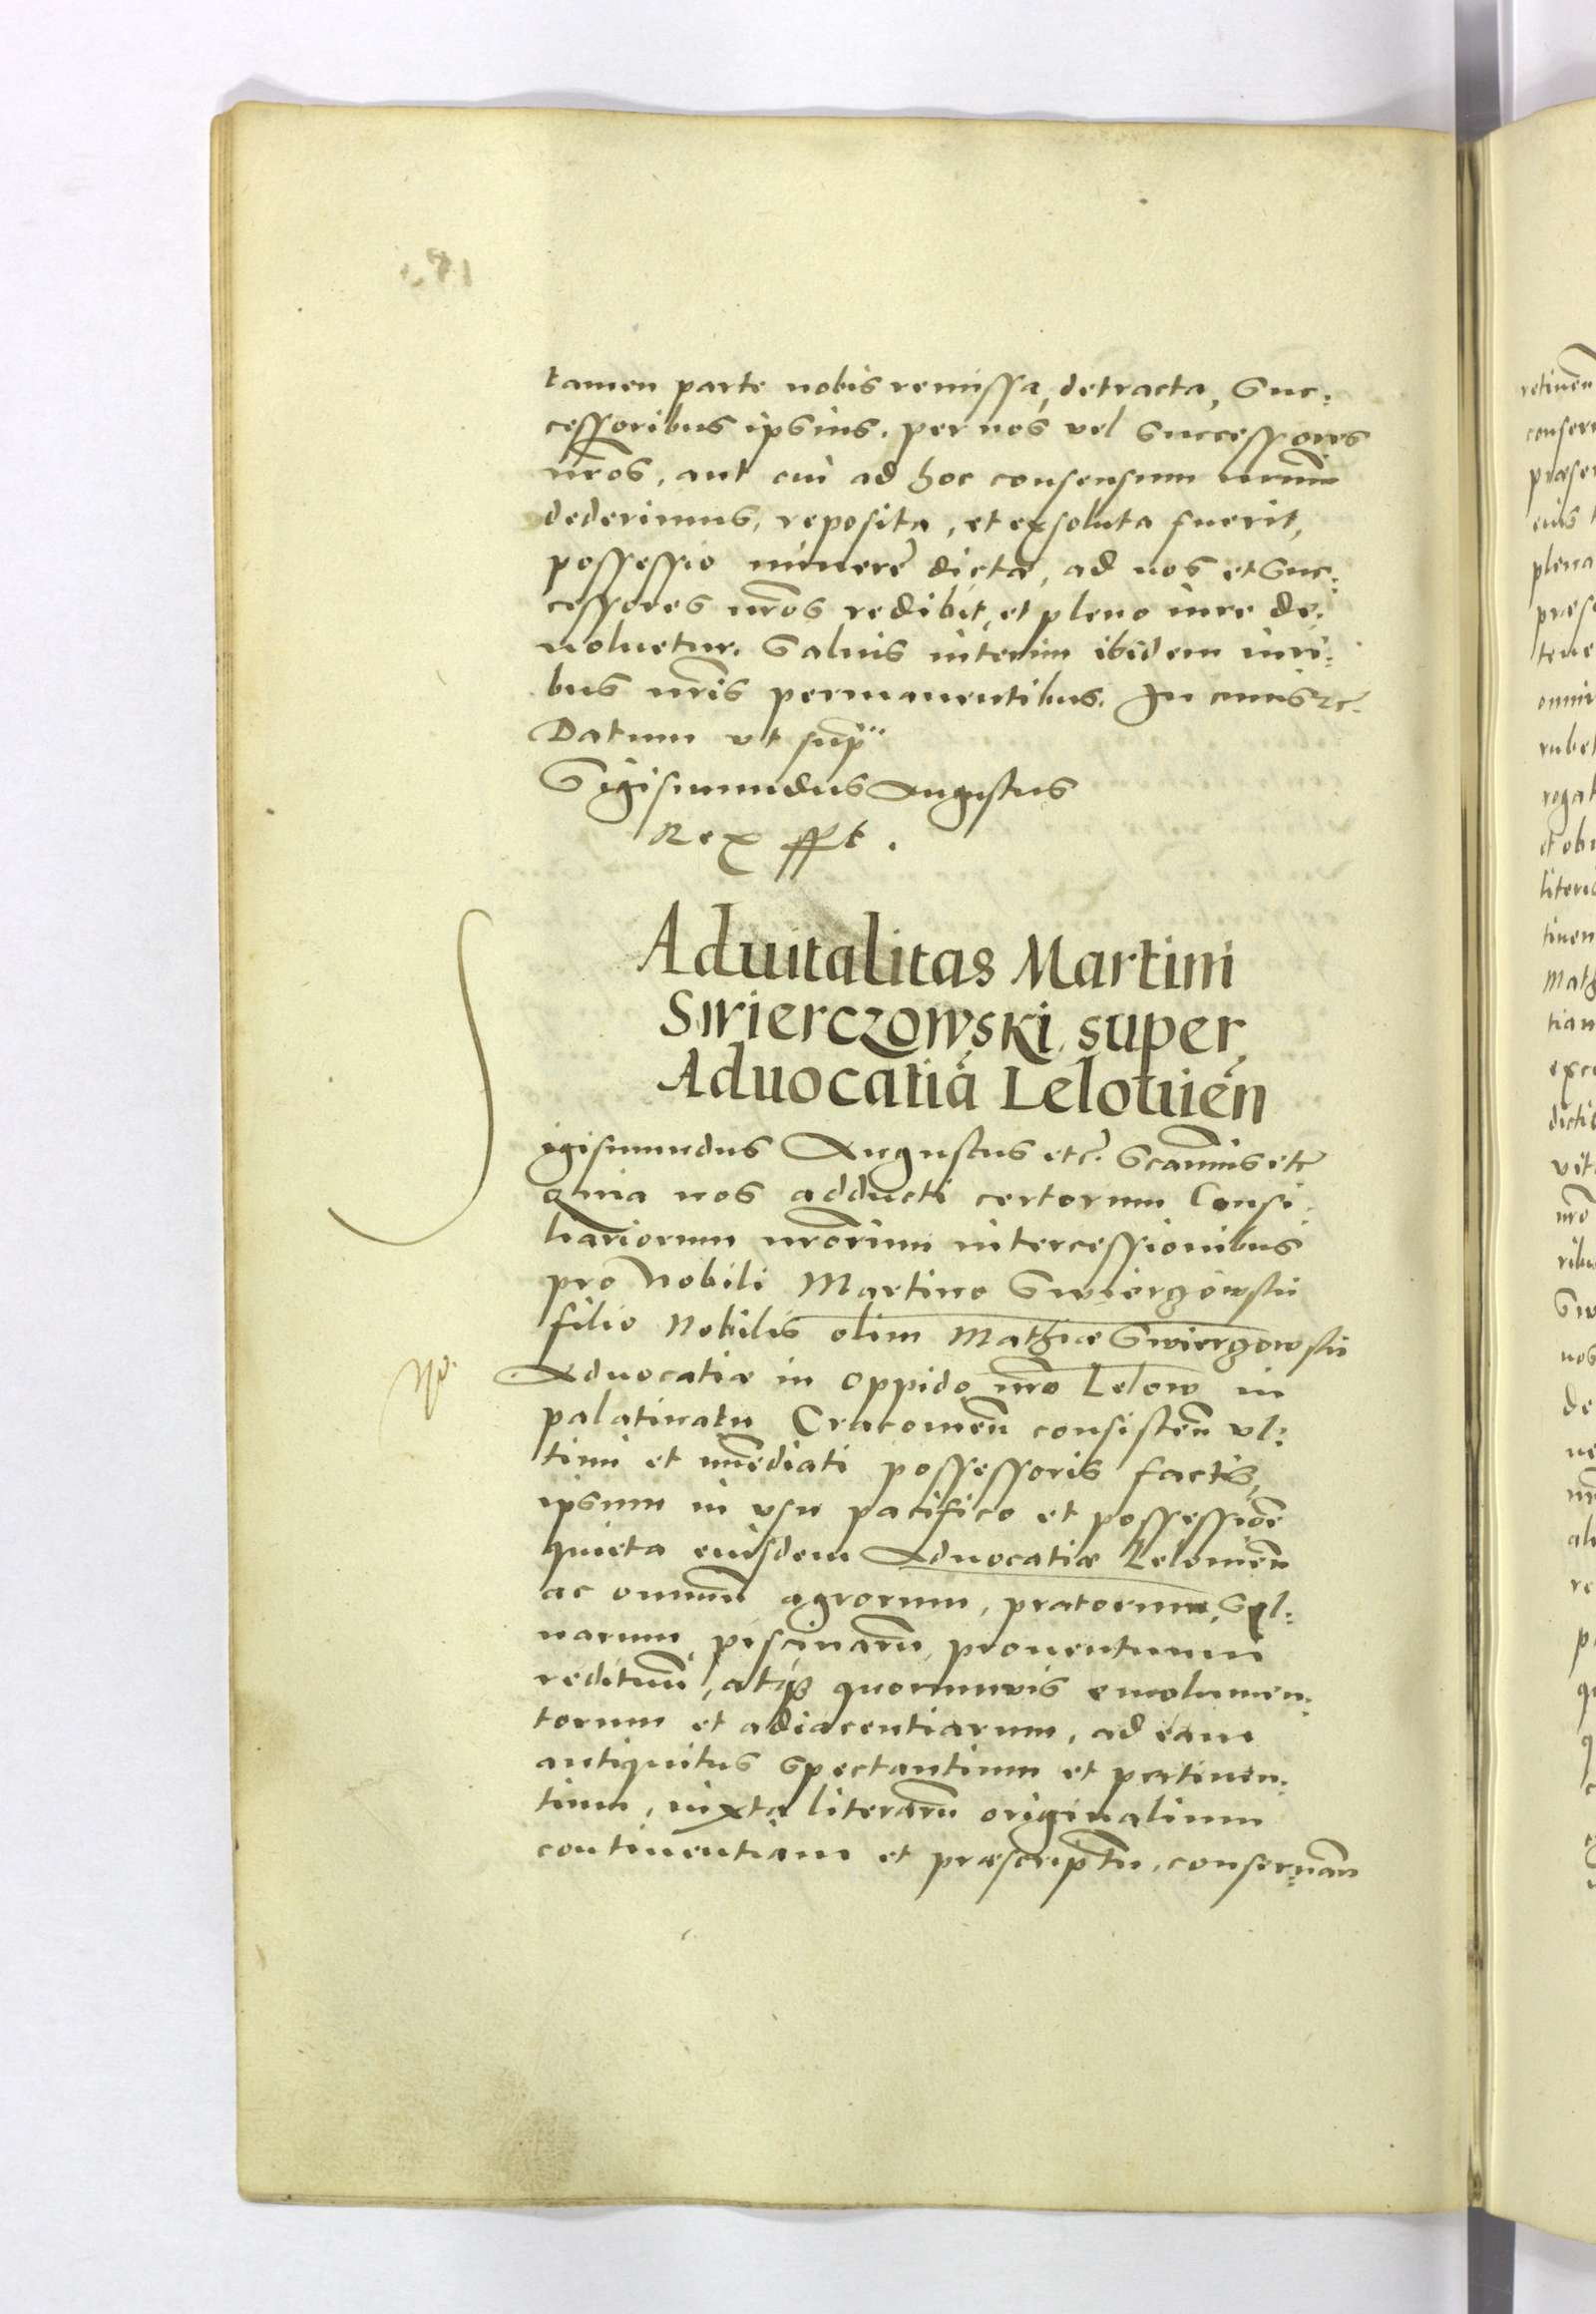 tamen parte nobis remissa, detracta, Suc:
cessoribus ipsius, per nos vel Successores
nros, aut cui ad hoc consensum nrum
dederimus, reposita, et exsoluta fuerit,
possessio dictae, ad nos et Suc:
cessores nros redibit, et pleno iure de:
voluetur. Saluis interim ibidem iuri:
bus nris permanentibus. In cuius etc.
Datum ut sup
Sigismundus Augustus
Rex sst.
Aduitalitas Martini
Swierczowski super
Aduocatiā Lelouien̄
Sigismundus Augustus etc. Scimus etc
Quia nos adducti certorum Consi:
liariorum nrorum intercessionibus
pro Nobili Martino Swiergowski
filio Nobilis olim Mathiæ Swiergowski
Aduocatiæ in oppido nro Lelow in
palatinatu Cracouien̄ consisten̄ ul:
timi et imediati possessoris factis,
ipsum in usu pacifico et possessione
quieta eiusdem Aduocatiæ Lelouien̄
ac omnium agrorum, pratorum, Syl:
uarum, piscinarū, prouentuum
redituum, atque quorumuis emolumen:
torum et adiacentiarum, ad eam
antiquitus Spectantium et pertinen:
tium, iuxta literarū originalium
continentiam et præscriptū, conseruan̄